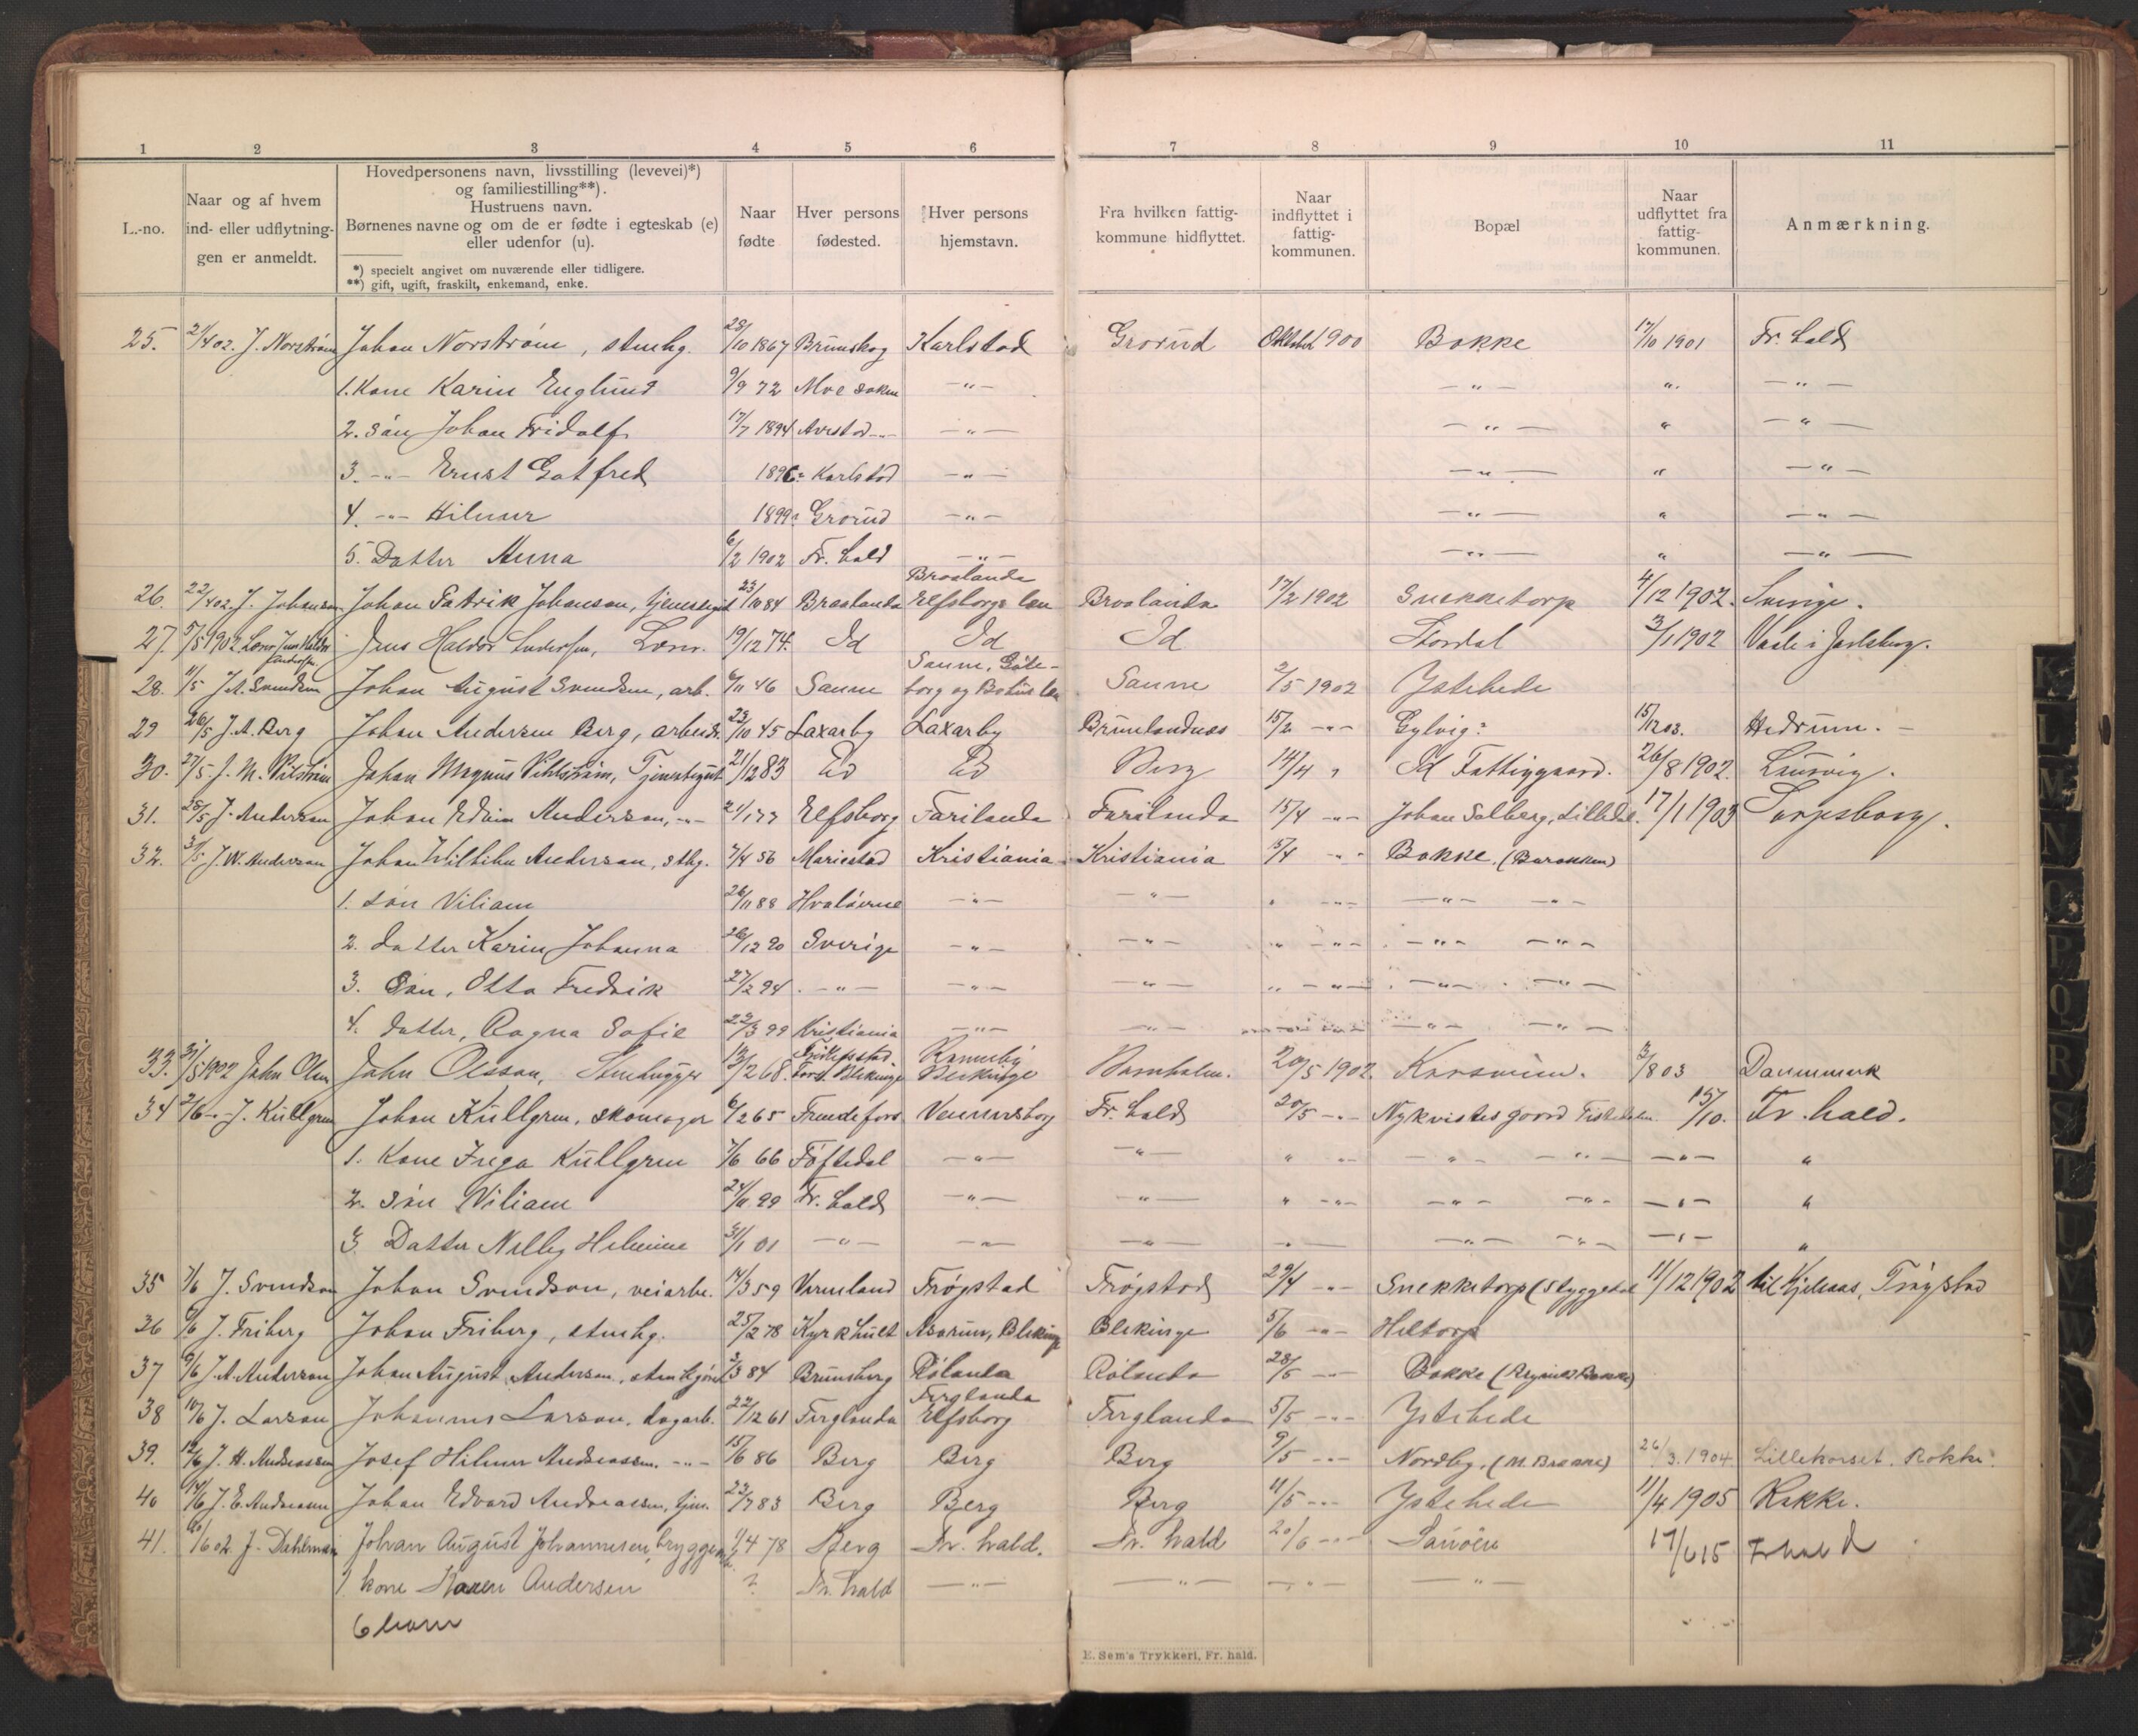 1 2 3 4 5 6 7 8 9 10 11
L.-no.
Naar og af hvem
ind- eller udflytnin-
gen er anmeldt.
Hovedpersonens navn, livsstilling (levevei)*)
og familiestilling**).
Hustruens navn.
Børnenes navne og om de er fødte i egteskab (e)
eller udenfor (u).
*) specielt angivet om nuværende eller tidligere.
**) gift, ugift, fraskilt, enkemand, enke.
Naar
fødte
Hver persons
fødested.
Hver persons
hjemstavn.
Fra hvilken fattig-
kommune hidflyttet.
Naar
indflyttet i
fattig-
kommunen.
Bopæl
Naar
udflyttet fra
fattig-
kommunen.
Anmærkning.
25. 21/4 02. J. Norström Johan Norström, stenhg. 28/10 1867 Brunskog Karlstad Grorud Oktober 1900 Bakke 17/10 1901 Fr.hald
1. Kone Karin Englund 9/9 72 Moe soken -"- -"- " -"-
2. Søn Johan Fridolf 17/7 1894 -"- -"- -"- " -"-
3. -"- Ernst Gotfred 1896 Karlstad -"- -"- " -"-
4. -"- Hilmer 1899 Grorud -"- -"- " -"-
5. Datter Anna 6/2 1902 Fr.hald -"- -"- " -"-
26. 22/4 02 J. Johanson Johan Patrik Johanson, tjenestegut 23/10 84 Braalanda Braalanda Elfsborgs län Braalanda 17/2 1902 Snekketorp 4/12 1902. Sverige.
27. 5/5 1902 Lærer Jens Haldor Andersen Jens Haldor Andersen, Lærer. 19/12 74. Id Id Id Stordal 3/1 1902 Vaale i Jarlsberg.
28. 11/5 J.A. Svendsen Johan August Svendsen, arb. 6/11 46 Sanne Sanne, Göte-
borg og Bohus län Sanne 2/5 1902 Ystehede
29 26/5 J.A. Berg Johan Anderson Berg, arbeidr. 23/10 45 Laxarby Laxarby Brunlandnæs 15/2 -"- Gylvig 15/12 03. Hedrum. -
30. 27/5 J. M. Vihlström Johan Magnus Vihlström, Tjenestegut 21/12 83 Ed Ed Berg 14/4 " Id Fattiggaard. 26/8 1902. Laurvig.
31. 28/5 J. Anderson Johan Edvin Anderson, -"- 21/1 77 Elfsborg Färilanda Färilanda 15/4 -"- Johan Solberg, Lilledal. 17/1 1903 Sarpsborg.
32. 31/5 J.W. Anderson Johan Wilhelm Anderson, sthg. 7/4 56 Mariestad Kristiania Kristiania 5/4 -"- Bakke. (Barakken)
1. søn Viliam 26/11 88 Hvaløerne -"- -"- " -"- -"- -"-
2. datter Karin Johanna 26/12 90 Sverige -"- -"- " -"- -"- -"-
3. Søn, Otto Fredrik 27/2 94 -"- -"- -"- " -"- -"- -"-
4. datter, Ragna Sofie 22/3 99 Kristiania -"- -"- -"- -"-
33. 31/5 1902 John Olsen John Olsson, Stenhugger 12/2 68. Fors. Blekinge Ramneby Blekinge Bornholm. 20/5 1902. Kornsmun. 3/8 03 Dannmark
34 2/6 -"- J. Kullgren Johan Kullgren, skomager 6/2 65 Frendefors Vennersborg Fr.hald 20/5 -"- Nykvistes gaard Tistedalen. 15/10. Fr.hald.
1. Kone Inga Kullgren 7/6 66 Töftedal -"- -"- " -"- -"- -"- -"- "
2. søn Viliam 24/11 99 Fr.hald -"- -"- " -"- -"- -"- -"- "
3 Datter Nelly Helmine 31/1 01 -"- -"- -"- " -"- -"- -"- "
35 7/6 J. Svendson Johan Svendson, veiarbe. 14/3 59 Vermland Trøgstad Trøgstad 29/4 -"- Snekketorp (Styggedal 11/12 1902 til Kjelsaas, Trøgstad
36 6/6 J. Friberg Johan Friberg, stenhg. 25/2 78 Kyrkhult Asarum, Blekinge Blekinge 5/6 -"- Heltorp
37 9/6 J.A. Anderson Johan August Anderson, stenhgger 3/3 84 Brunsberg Rölanda Rölanda 28/5 -"- Bakke
38 10/6 J. Larson Johannes Larson, dagarb. 22/12 61 Ferglanda Ferglanda Elfsborg Ferglanda 5/5 -"- Ystehede
39. 12/6 J. H. Andreassen Josef Hilmer Andreassen. -"- 15/6 86 Berg Berg Berg 9/5 -"- Nordby. (M. Bakke) 26/3. 1904 Lillekorset. Rokke.
40 14/6 J. E. Andreasen Johan Edvard Andreassen, tjen. 23/7 83 Berg Berg Berg 11/5 -"- Ystehede 11/4 1905 Rokke.
41. 20/6 02. J. Dahlman Johan August Johannesen, bryggearb. 1/4 78 Berg Fr.hald. Fr.hald 20/6 -"- Sauøen 17/6 15 Frhald
1 kone Karen Andersen ? Fr.hald -"- -"- -"- -"-
6 barn
E. Sem's Trykkeri, Fr. hald.
K
L
M
N
O
P
Q
R